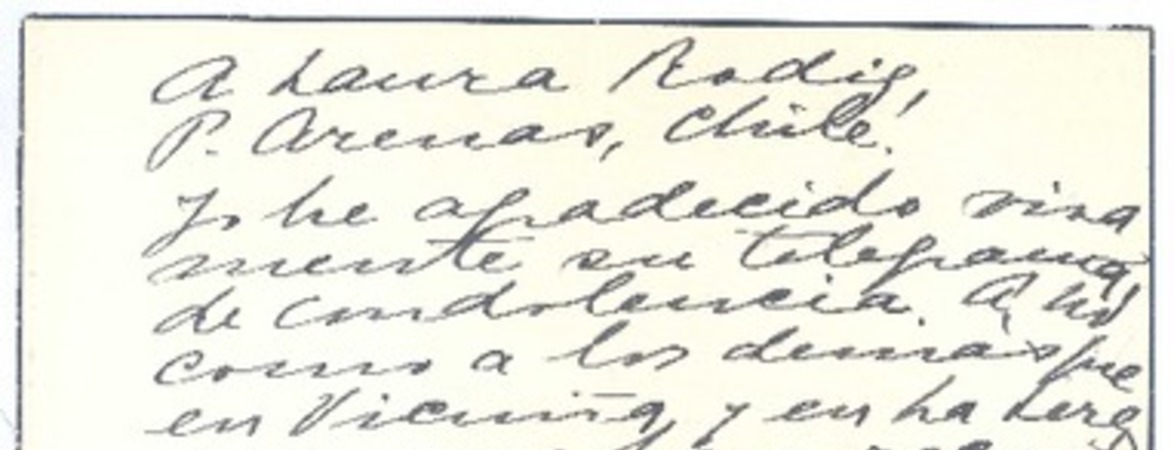 A Laura Rodig,
P. Arenas, Chile.
Yo he agradecido viva
mente su telegrama
de condolencia. A Ud
como a los demás que
en Vicuña, y en La Sere